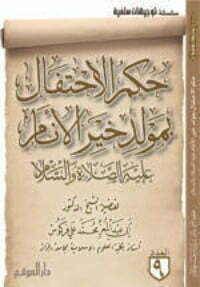 سلسلة توجيهات سلفية
حكم الاحتفال
بمولد خير الأنام
عليه الصلاة والسلام
لفضيلة الشيخ الدكتور
أبي عبد المعز محمد علي فركوس
أستاذ بكلية العلوم الإسلامية بجامعة الجزائر
العدد
٩
دار الموقع